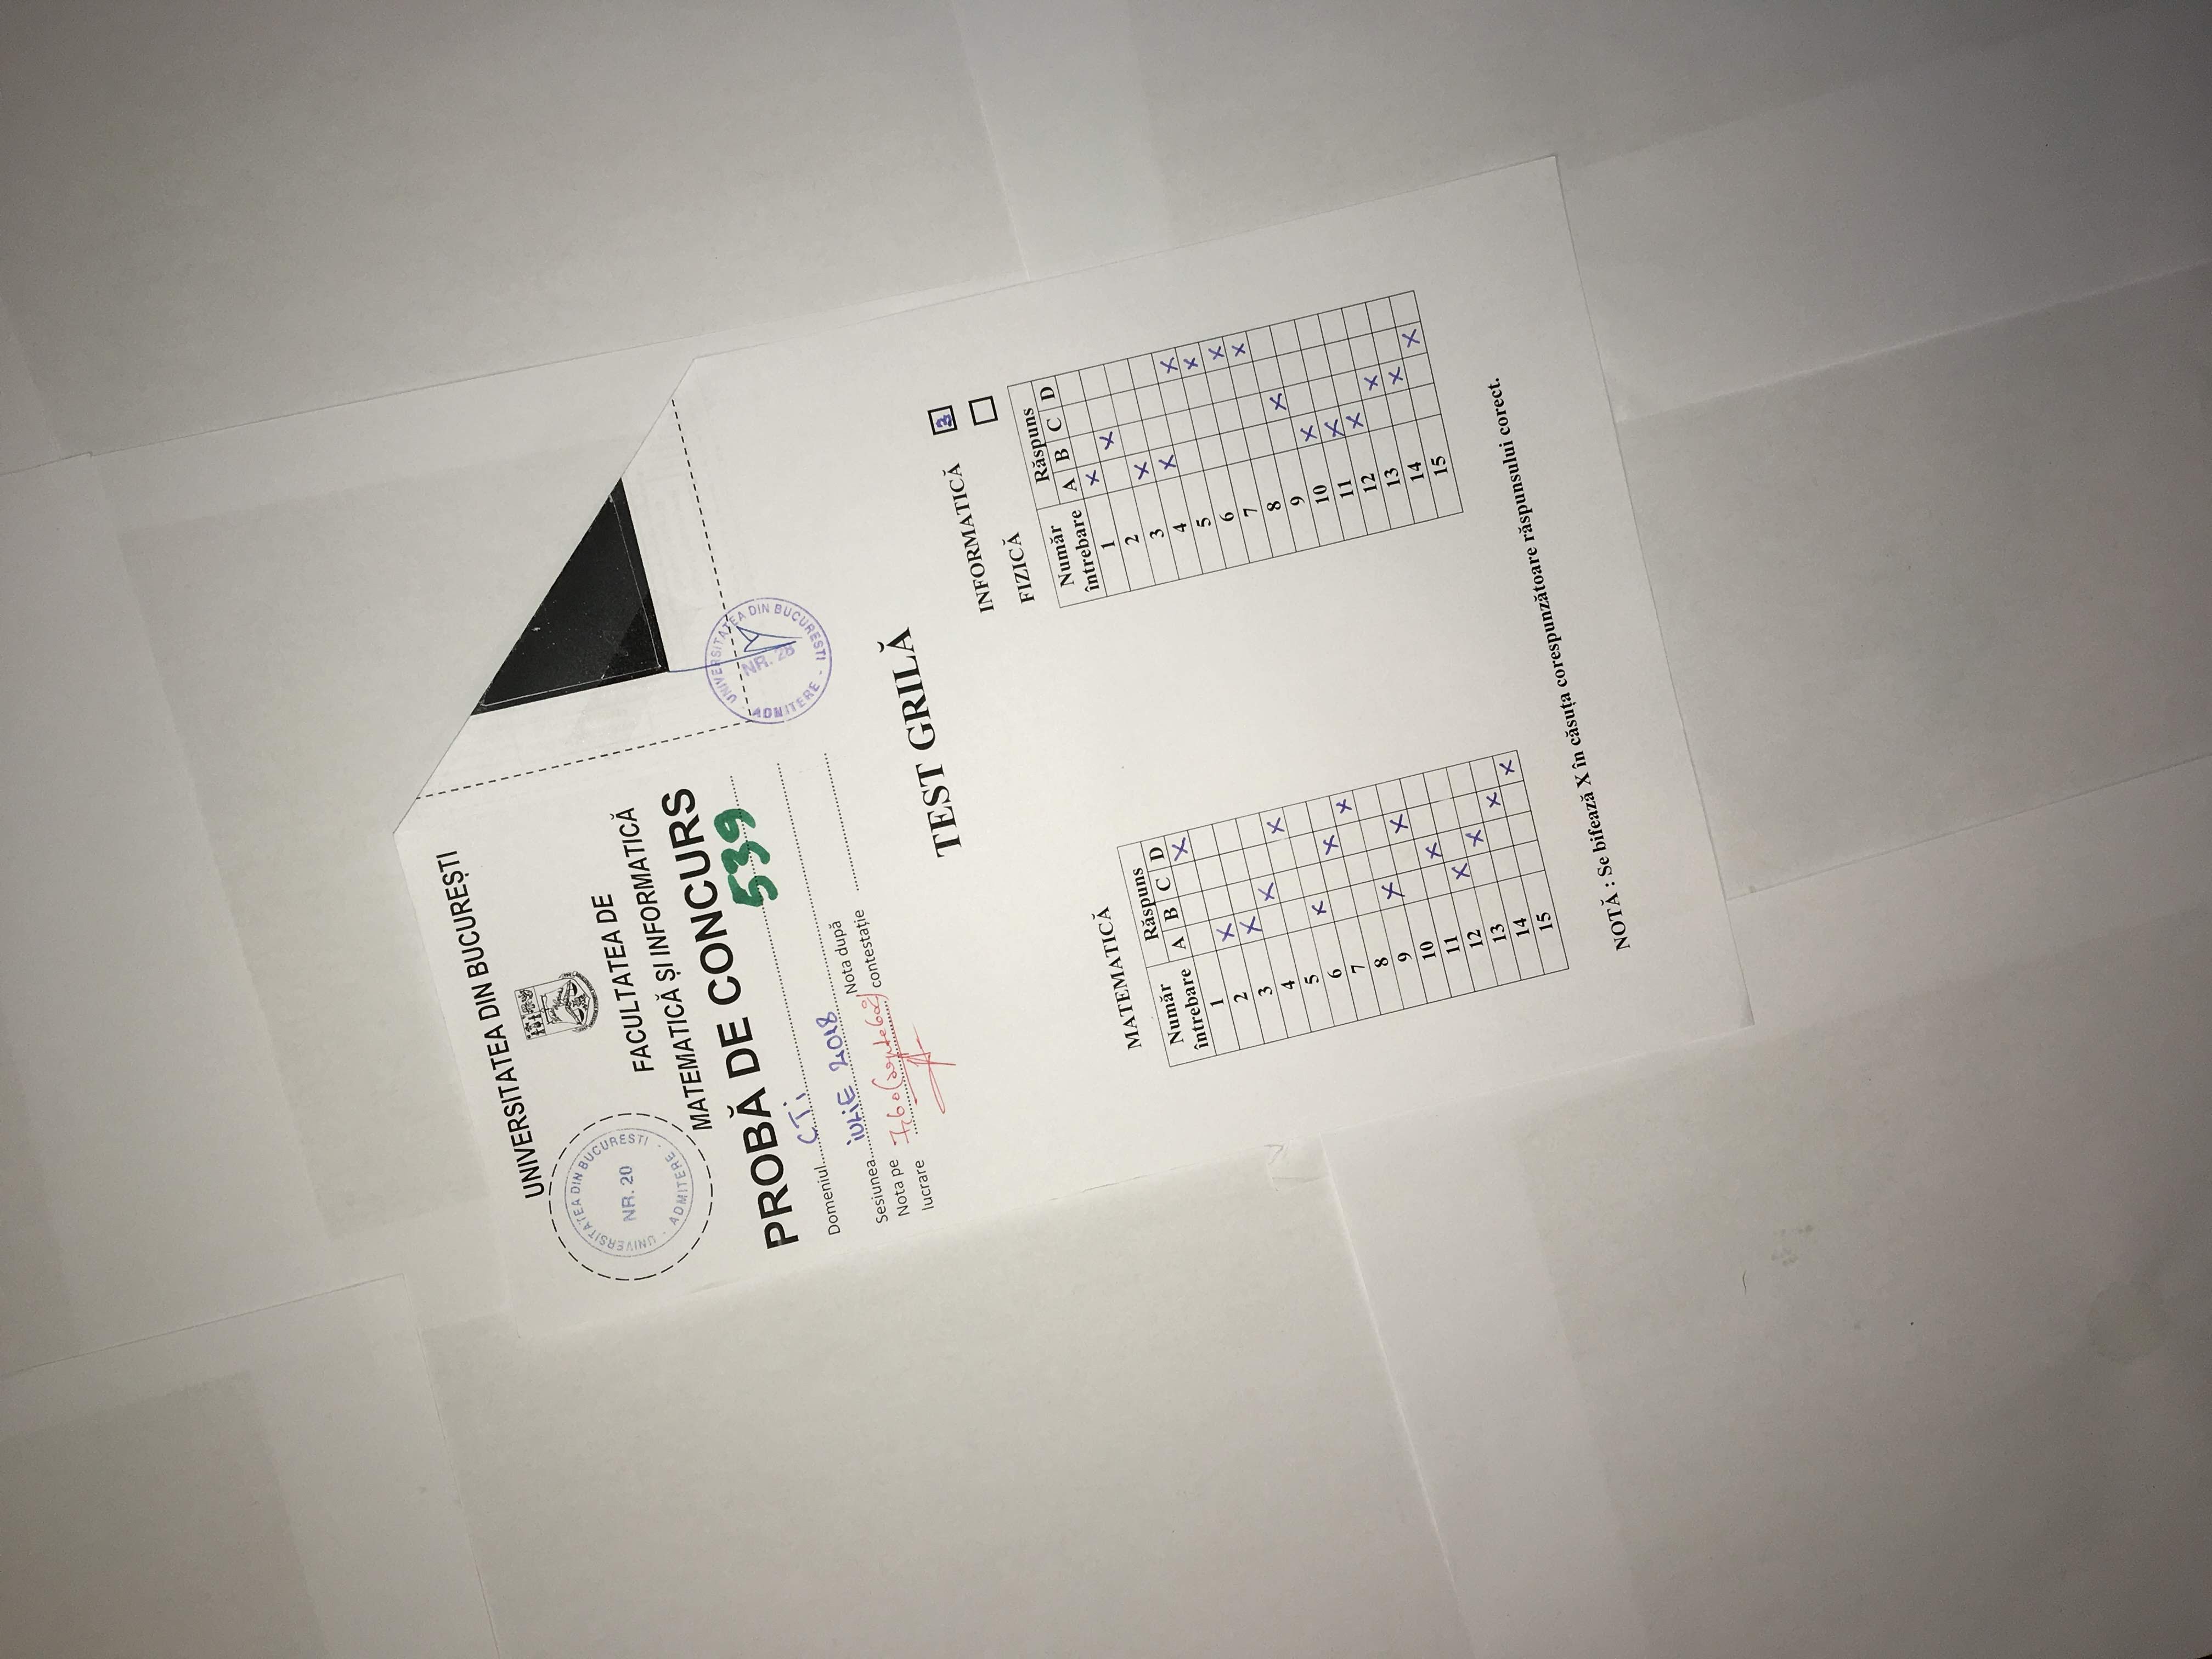 UNIVERSITATEA DIN BUCUREȘTI
UNIVERSITATEA DIN BUCURESTI
NR. 20
- ADMITERE -
FACULTATEA DE
MATEMATICĂ ȘI INFORMATICĂ
PROBĂ DE CONCURS
539
Domeniul CTi
Sesiunea iULiE 2018
Nota pe lucrare 7,60
Nota după contestație
UNIVERSITATEA DIN BUCURESTI
- ADMITERE -
TEST GRILĂ
INFORMATICĂ
FIZICĂ
MATEMATICĂ
Număr întrebare Răspuns
A B C D
1 X
2 X
3 X
4 X
5 X
6 X
7 X
8 X
9 X
10 X
11 X
12 X
13 X
14 X
15 X
Număr întrebare Răspuns
A B C D
1 X
2 X
3 X
4 X
5 X
6 X
7 X
8 X
9 X
10 X
11 X
12 X
13 X
14 X
15 X
NOTĂ : Se bifează X în căsuța corespunzătoare răspunsului corect.